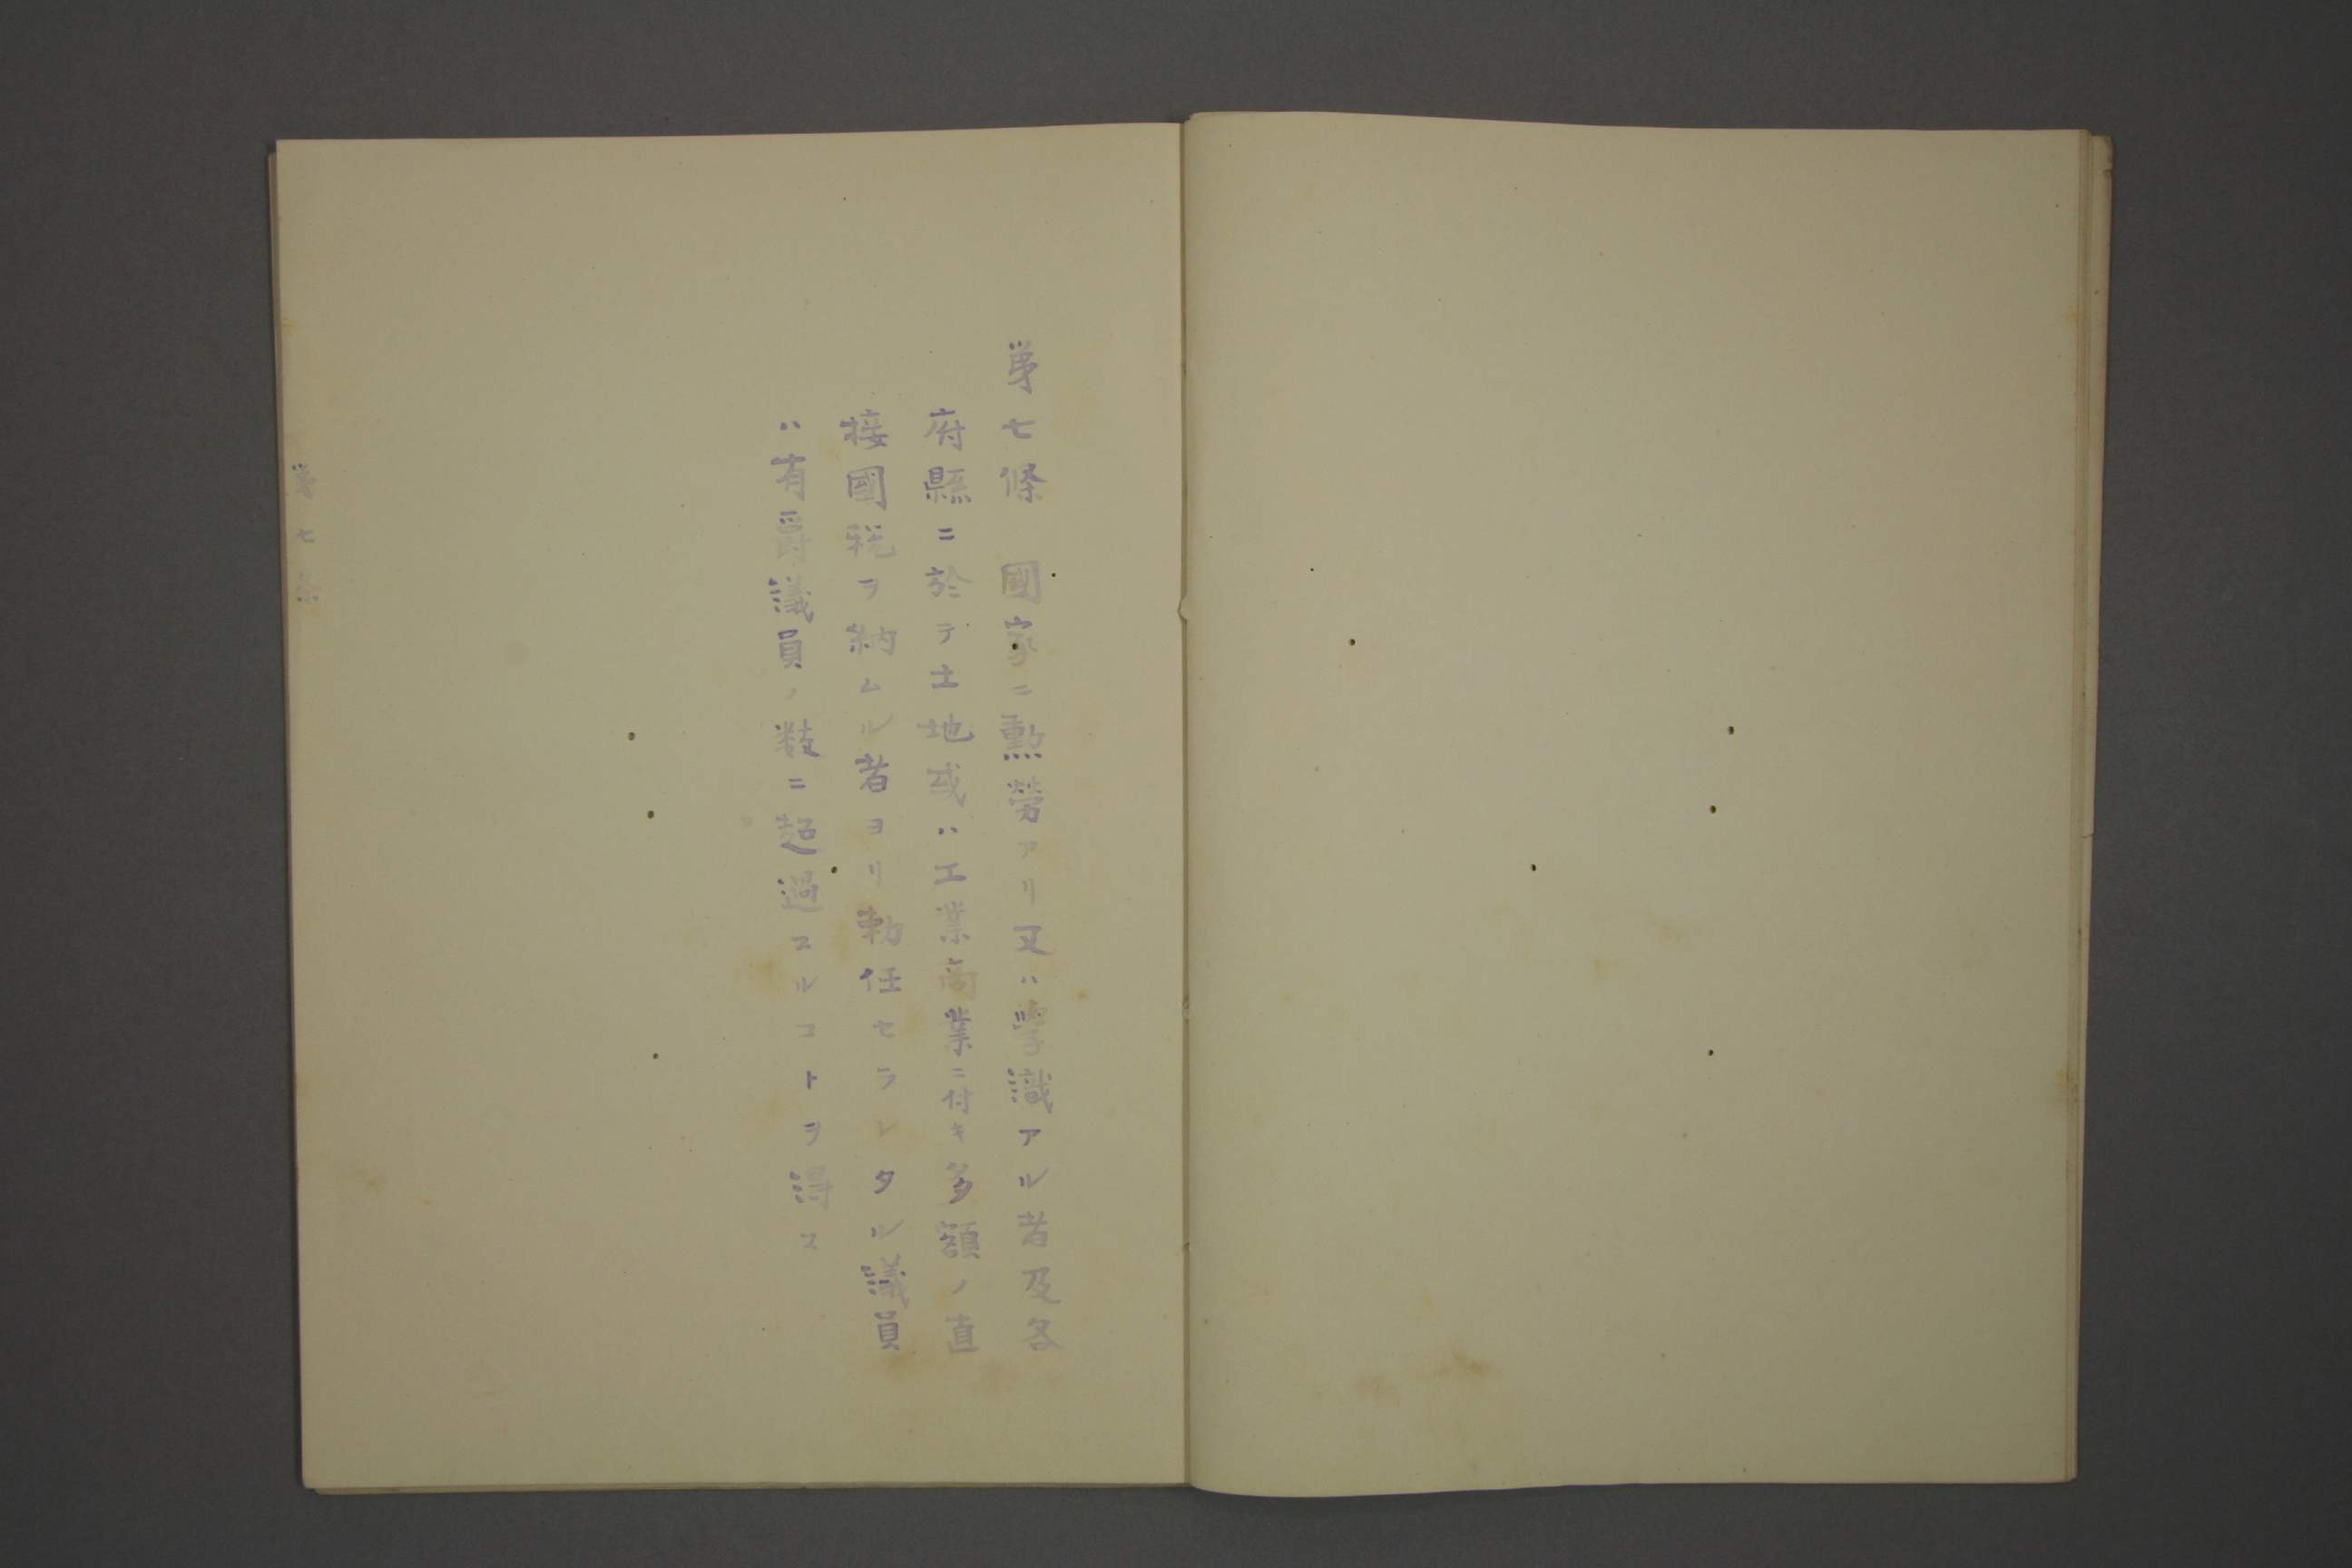 第七條　國家ニ勲勞アリ又ハ學識アル者及各
府縣ニ於テ土地或ハ工業商業ニ付キ多額ノ直
接國税ヲ納ムル者ヨリ勅任セラレタル議員
ハ有爵議員ノ数ニ超過スルコトヲ得ス
第七条